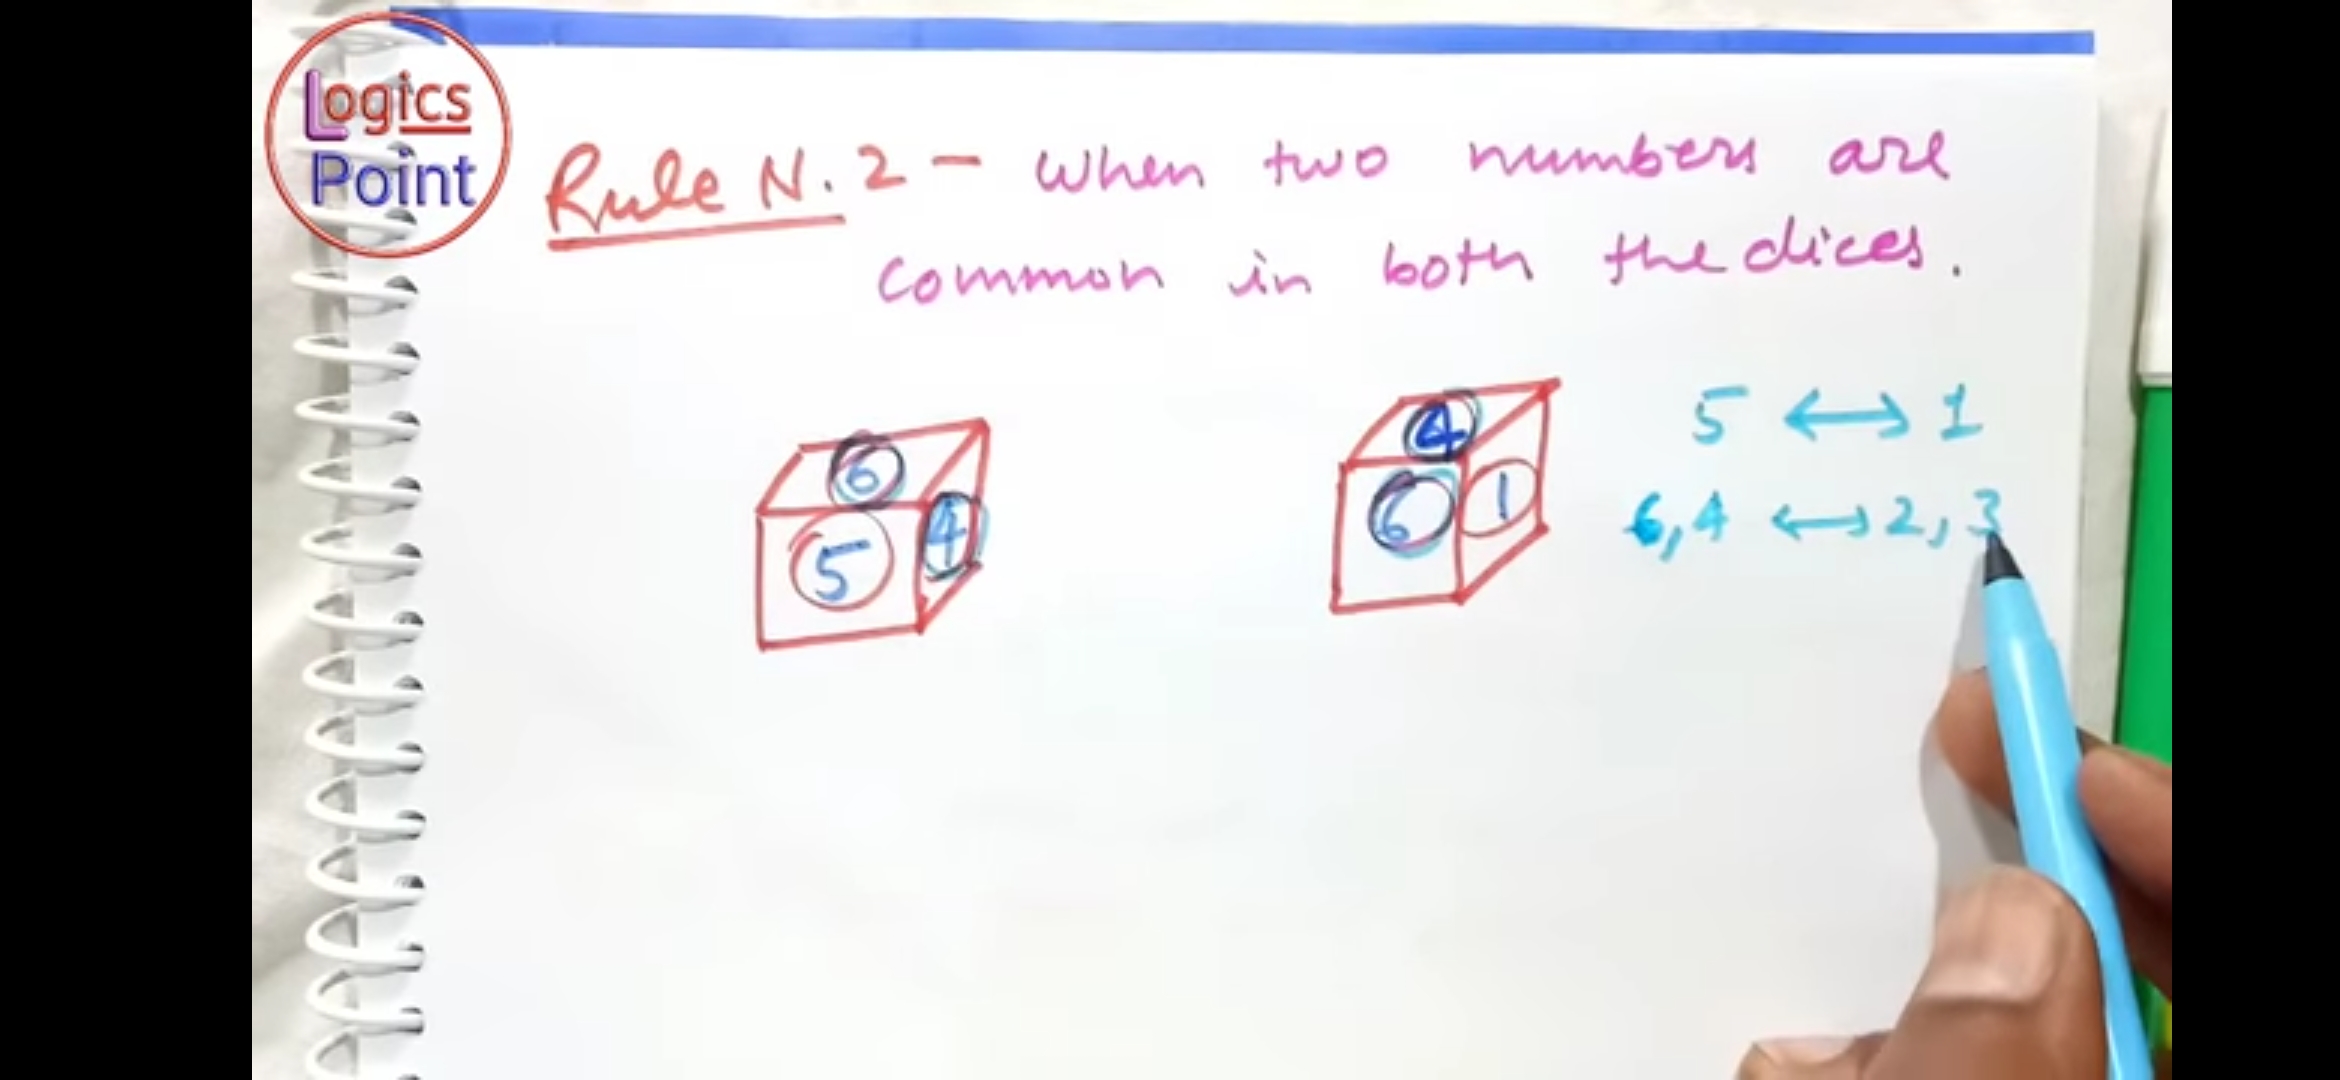 Logics
Point
Rule N.2 - When two numbers are
common in both the dices.
6
5
4
4
6
1
5 ↔ 1
6,4 ↔ 2,3